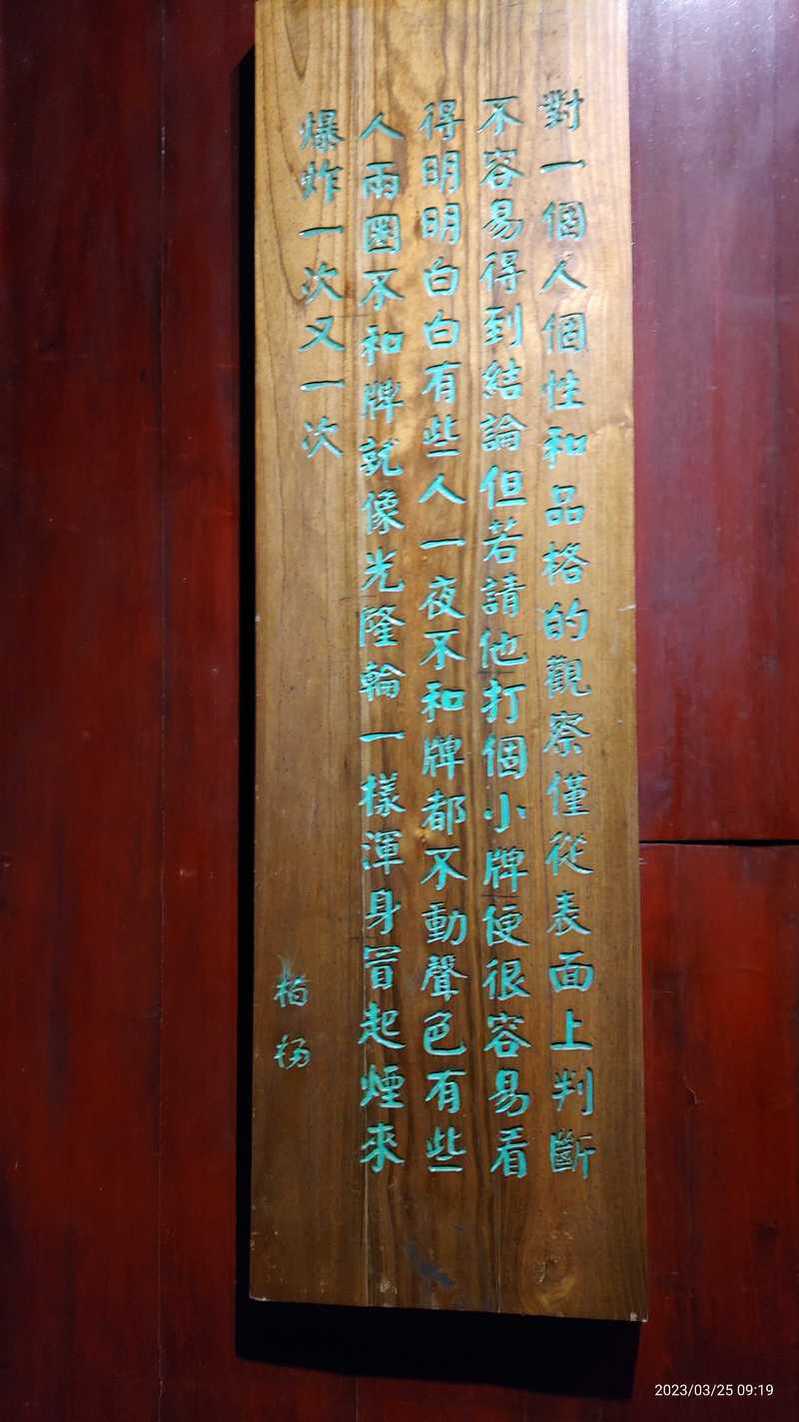 對一個人個性和品格的觀察僅從表面上判斷
不容易得到結論但若請他打個小牌便很容易看
得明明白白有些人一夜不和牌都不動聲色有些
人兩圈不和牌就像光隆輪一樣渾身冒起煙來
爆炸一次又一次
柏楊
2023/03/25 09:19